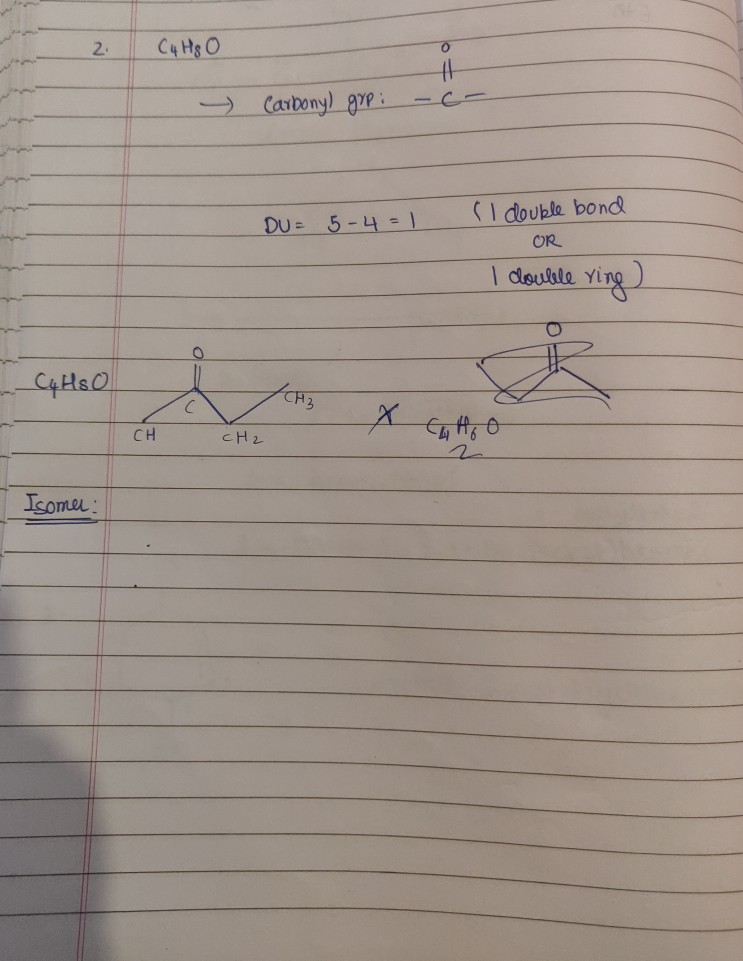 2. C4H8O
O
||
→ Carbonyl grp: – C –
DU = 5 - 4 = 1 ( 1 double bond
OR
1 double ring )
O O
C4H8O
C CH3
CH CH2 X C4H6O
2
Isomer: